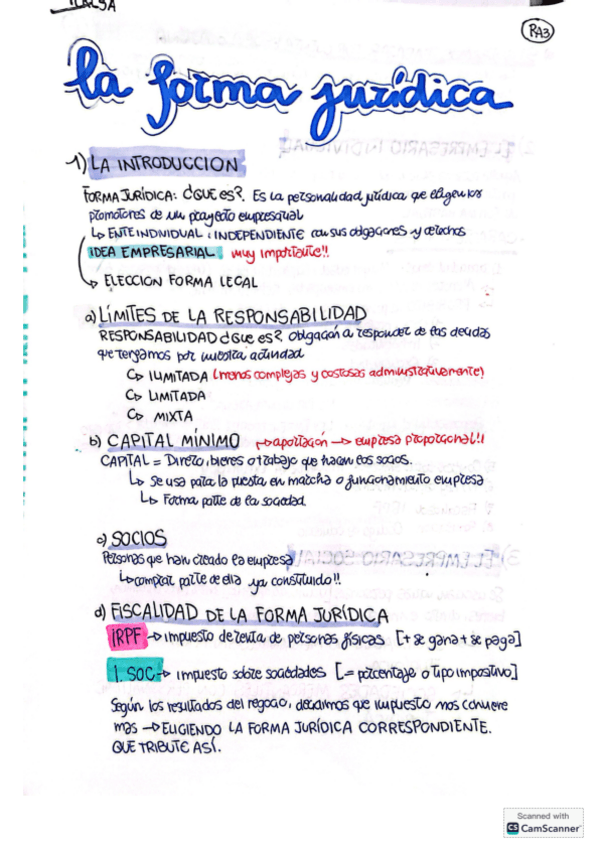 RA3
la forma jurídica
1) LA INTRODUCCION
FORMA JURÍDICA: ¿QUE ES?. Es la personalidad jurídica que eligen los
promotores de un proyecto empresarial
↳ ENTE INDIVIDUAL e INDEPENDIENTE con sus obligaciones y derechos
IDEA EMPRESARIAL muy importante!!
↳ ELECCION FORMA LEGAL
a) LÍMITES DE LA RESPONSABILIDAD
RESPONSABILIDAD ¿QUE ES? Obligación a responder de las deudas
que tengamos por nuestra actividad
↳ ILIMITADA (menos complejas y costosas administrativamente)
↳ LIMITADA
↳ MIXTA
b) CAPITAL MÍNIMO → aportación → empresa proporcional!!
CAPITAL = Dinero, bienes o trabajo que hacen los socios.
↳ Se usa para la puesta en marcha o funcionamiento empresa
↳ Forma parte de la sociedad.
c) SOCIOS
Personas que han creado la empresa
↳ comprar parte de ella ya constituido!!
d) FISCALIDAD DE LA FORMA JURÍDICA
IRPF → impuesto de renta de personas físicas [+ se gana + se paga]
I. SOC → impuesto sobre sociedades [= porcentaje o tipo impositivo]
Según los resultados del negocio, decidimos que impuesto nos conviene
mas → ELIGIENDO LA FORMA JURÍDICA CORRESPONDIENTE.
QUE TRIBUTE ASÍ.
Scanned with
CS CamScanner